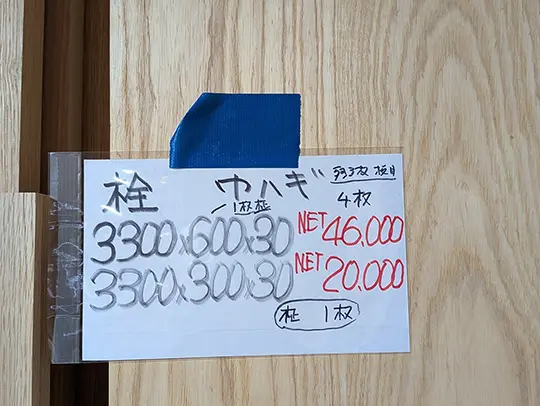 栓 巾ハギ
4枚
1枚板
3300x600x30 NET 46,000
3300x300x30 NET 20,000
柾 1枚